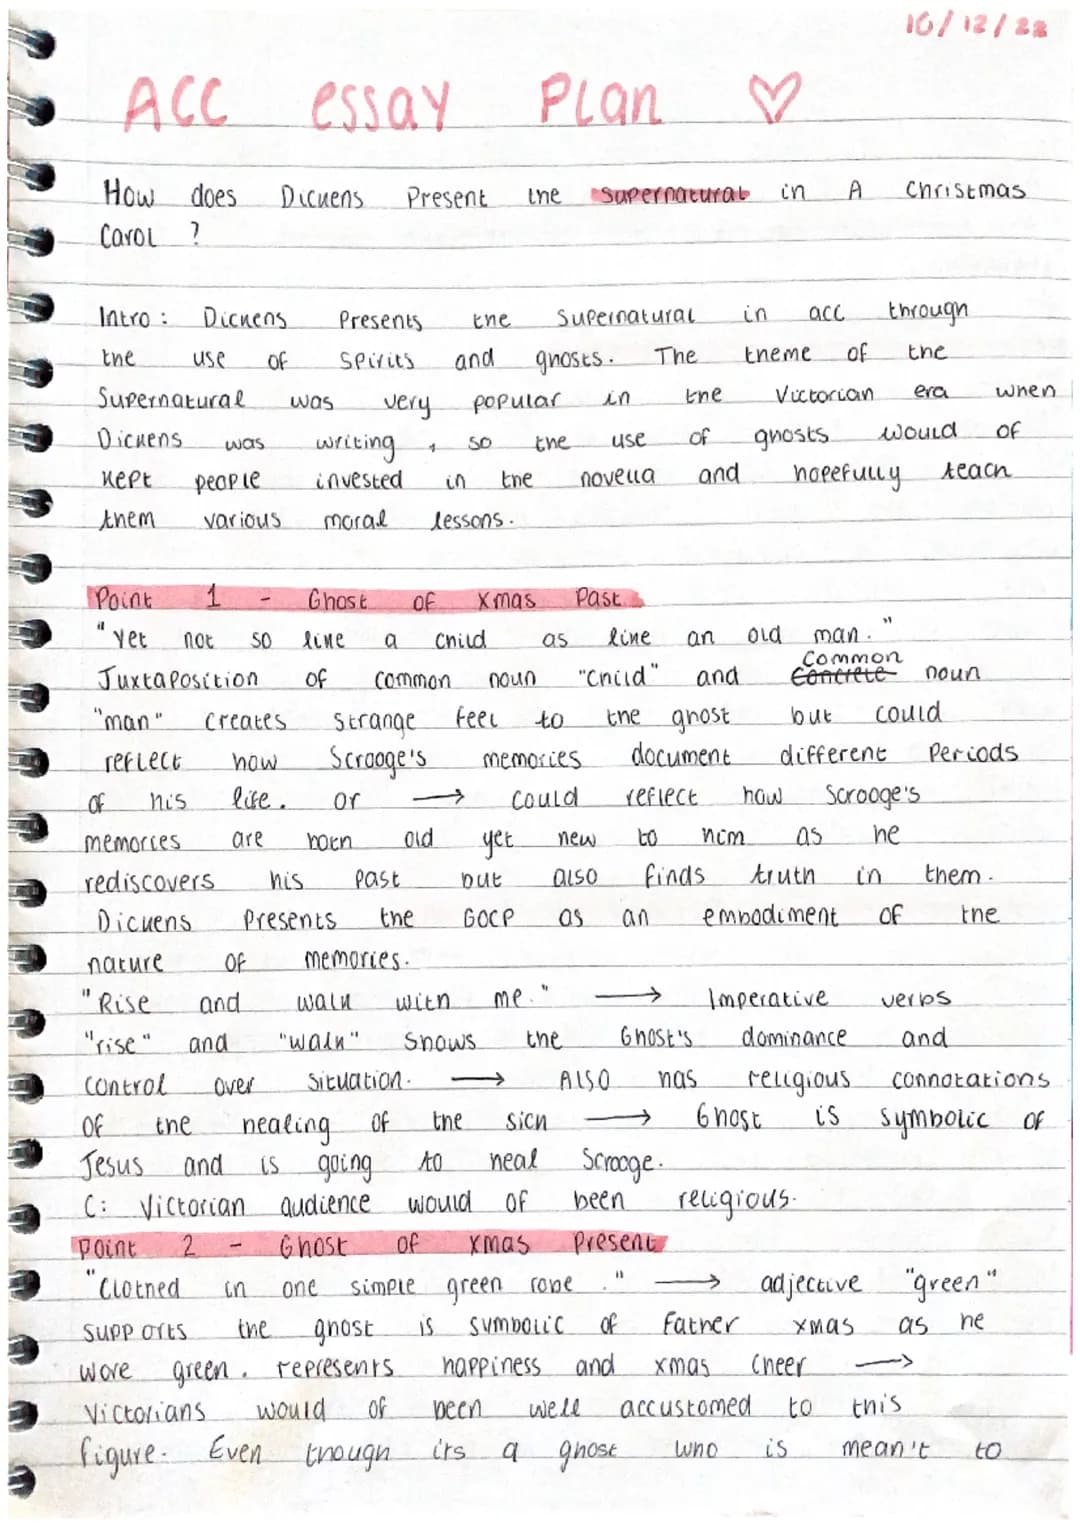 10/12/22
ACC essay Plan ♡
How does Dickens Present the supernatural in A Christmas
Carol ?
Intro : Dickens Presents the Supernatural in acc through
the use of Spirits and ghosts. The theme of the
Supernatural was very popular in the Victorian era when
Dickens was writing , so the use of ghosts would of
kept people invested in the novella and hopefully teach
them various moral lessons.
Point 1 - Ghost of Xmas Past
"Yet not so like a child as like an old man."
Common
Juxtaposition of common noun "child" and Concrete noun
"man" creates strange feel to the ghost but could
reflect how Scrooge's memories document different Periods
of his life. or → could reflect how Scrooge's
memories are both old yet new to him as he
rediscovers his past but also finds truth in them.
Dickens Presents the GOCP as an embodiment of the
nature of memories.
"Rise and walk with me." → Imperative verbs
"rise" and "walk" Shows the Ghost's dominance and
control over situation. → Also has religious connotations
of the healing of the sick → Ghost is symbolic of
Jesus and is going to heal Scrooge.
C: Victorian audience would of been religious.
Point 2 - Ghost of Xmas Present
"Clothed in one simple green robe ." → adjective "green"
supports the ghost is symbolic of Father xmas as he
wore green. represents happiness and xmas cheer →
Victorians would of been well accustomed to this
figure. Even though its a ghost who is mean't to